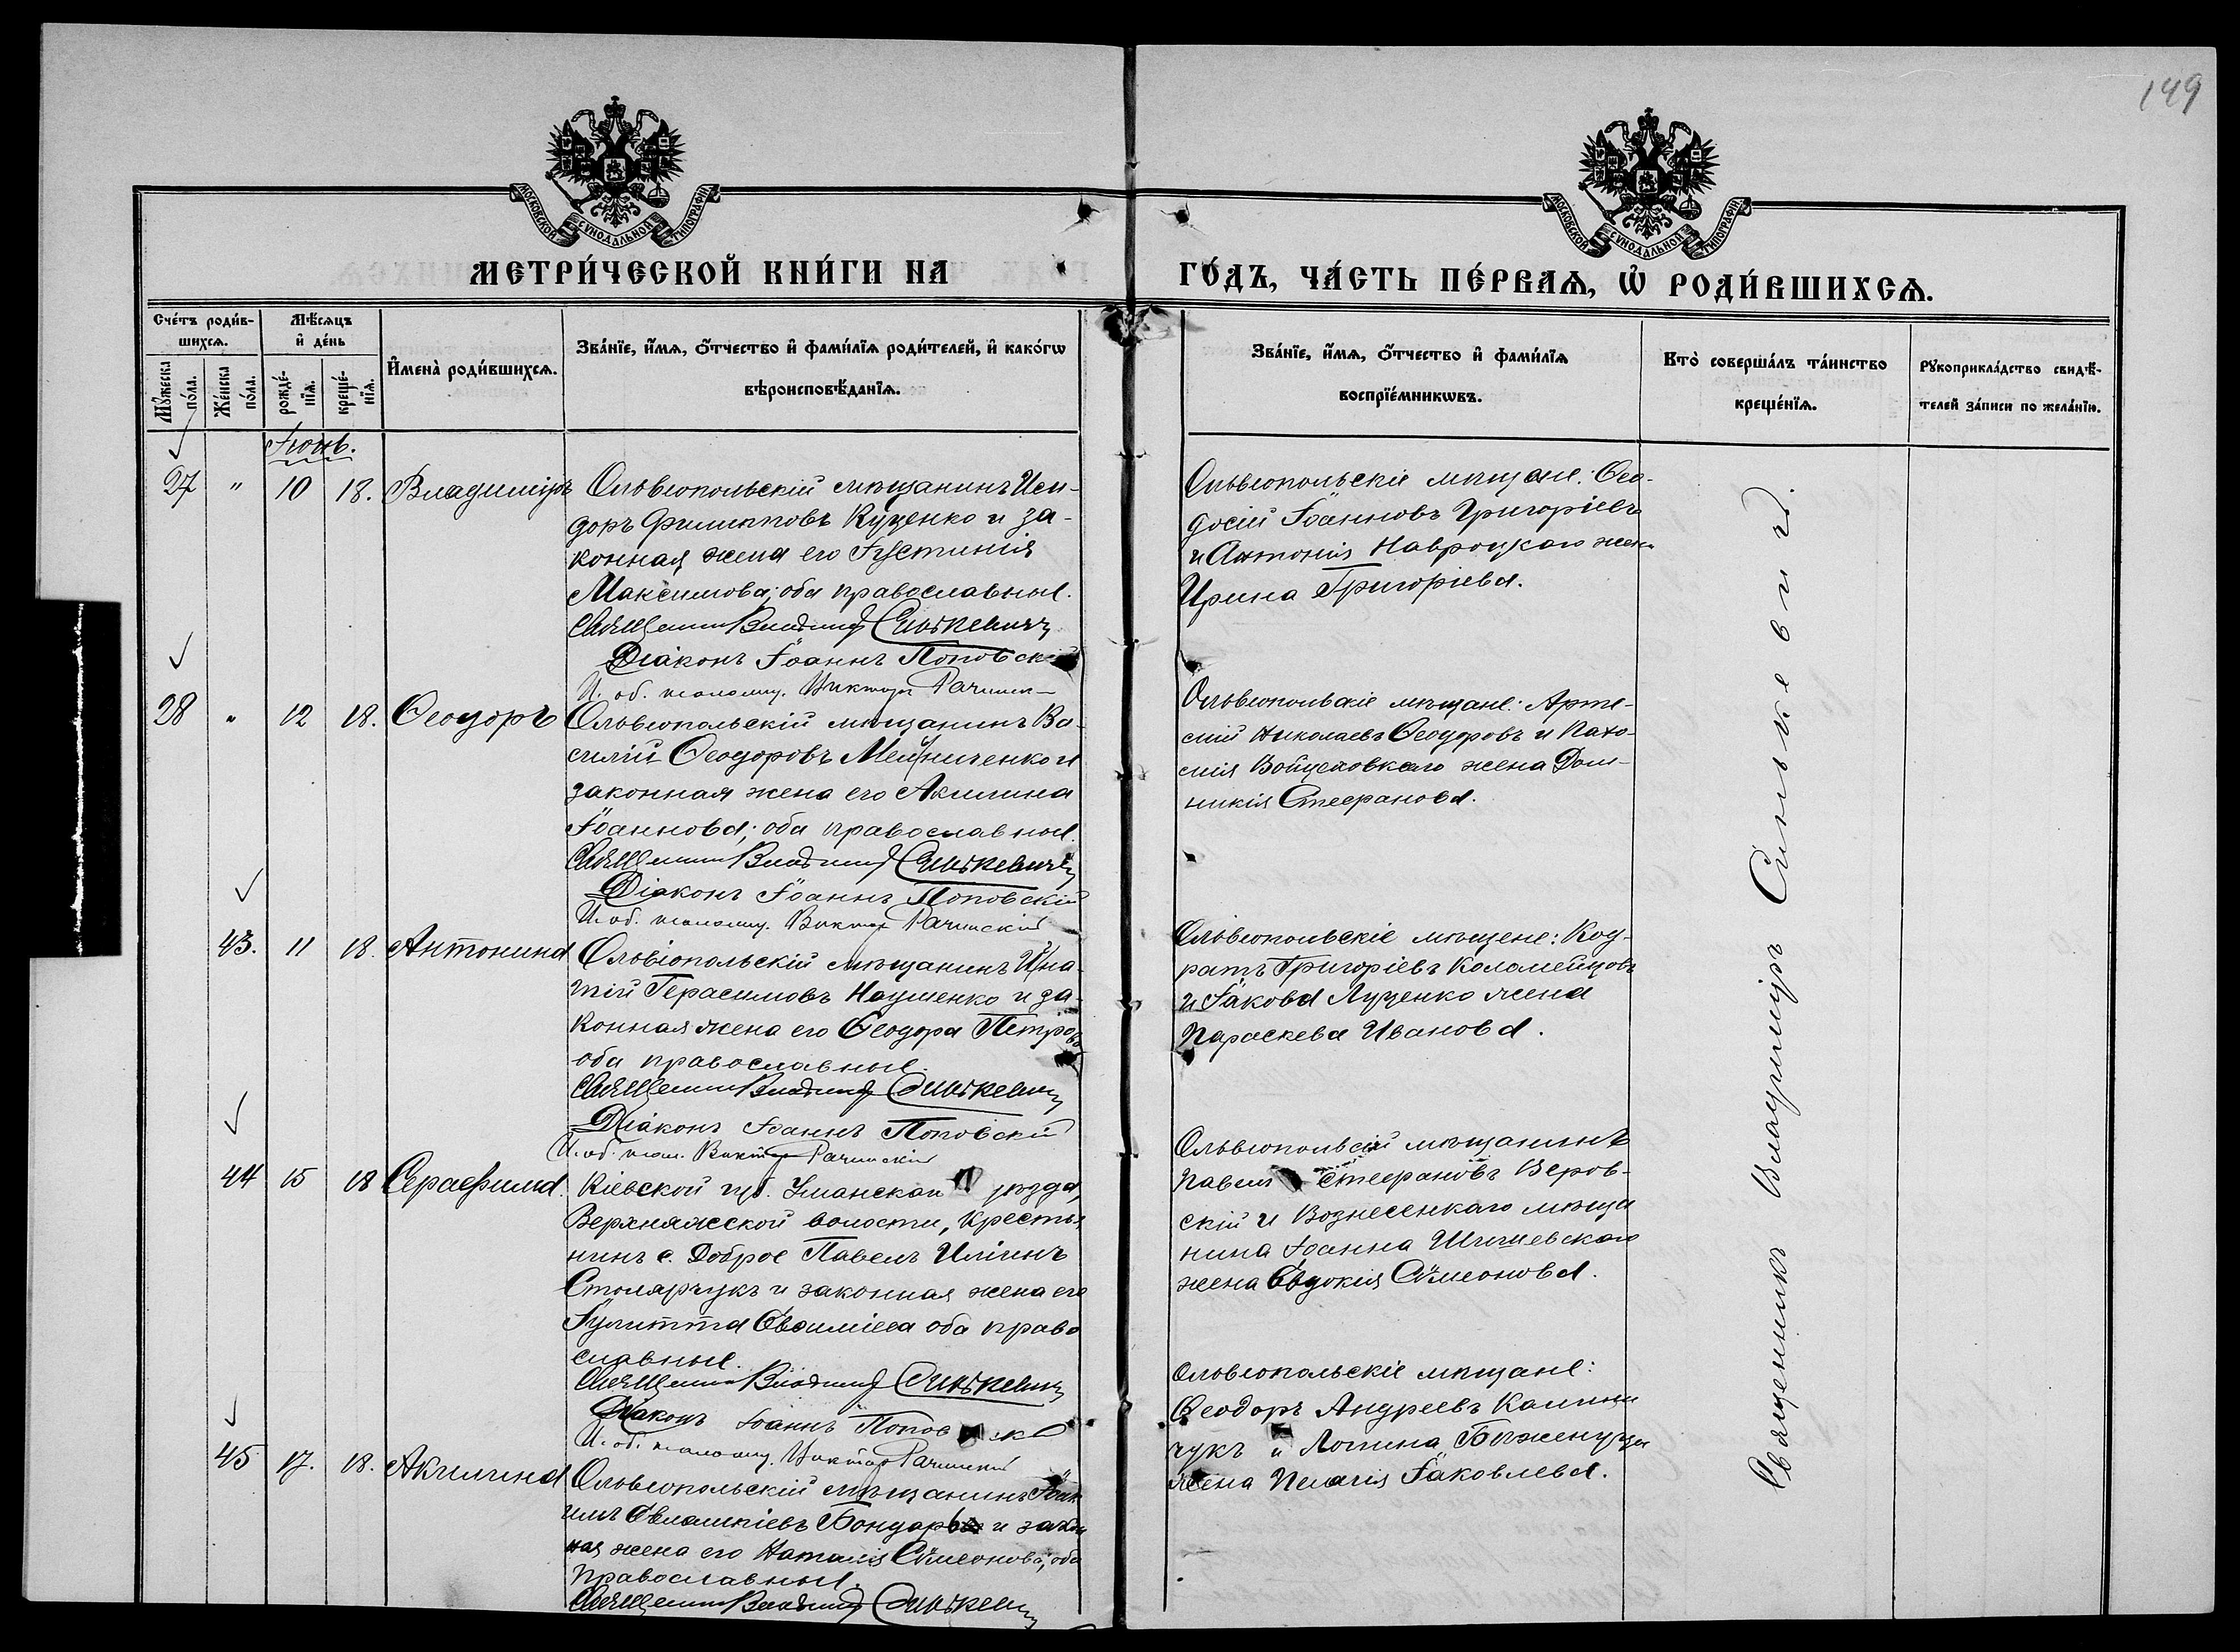 149
МОСКОВСКОЙ СѴНОДАЛЬНОЙ ТИПОГРАФІИ
МОСКОВСКОЙ СѴНОДАЛЬНОЙ ТИПОГРАФІИ
МЕТРИ́ЧЕСКОЙ КНИ́ГИ НА
ГО́ДЪ, ЧА́СТЬ ПЕ́РВАѦ, Ѡ҆ РОДИ́ВШИХСѦ.
Сче́тъ роди́в-
шихсѧ.
Мꙋ́жеска по́ла.
Же́нска по́ла.
Мѣ́сѧцъ
и҆ де́нь
рожде́-
нїѧ.
креще́-
нїѧ.
И҆мена̀ роди́вшихсѧ.
Зва́нїе, и҆́мѧ, ѻ҆́тчество и҆ фами́лїѧ роди́телей, и҆ како́гѡ
вѣроисповѣ́данїѧ.
Зва́нїе, и҆́мѧ, ѻ҆́тчество и҆ фами́лїѧ
воспрїе́мникѡвъ.
Кто̀ соверша́лъ та́инство
креще́нїѧ.
Рꙋкоприкла́дство свидѣ́-
телей за́писи по жела́нїю.
Іюнь.
27 " 10 18. Владиміръ
Ольвіопольскій мѣщанинъ Иси-
доръ Филипповъ Куценко и за-
конная жена его Іустинія
Максимова; оба православные.
Священник Владимір Синькевичъ
Діаконъ Іоаннъ Поповскій
И. об. псаломщ. Виктор Рачинск
Ольвіопольскіе мѣщане: Ѳео-
досій Іоанновъ Григоріевъ
и Антонія Навроцкаго жена
Ирина Григоріева.
28 " 12 18. Ѳеодоръ
Ольвіопольскій мѣщанинъ Ва-
силій Ѳеодоровъ Мельниченко и
законная жена его Акилина
Іоаннова; оба православные.
Священник Владимір Синькевичъ
Діаконъ Іоаннъ Поповскій
И. об. псаломщ. Виктор Рачинскій
Ольвіопольскіе мѣщане: Арте-
мій Николаевъ Ѳеодоровъ и Пахо-
мія Войцеховкаго жена Дом-
никія Стефанова.
43. 11 18. Антонина
Ольвіопольскій мѣщанинъ Игна-
тій Герасимовъ Науменко и за-
конная жена его Ѳеодора Петрова
оба православные.
Священник Владимір Синькевич
Діаконъ Іоаннъ Поповскій
И. об. псал. Виктор Рачинскій
Ольвіопольскіе мѣщене: Код-
ратъ Григоріевъ Коломейцовъ
и Іакова Луценко жена
Параскева Иванова.
44 15 18 Серафима.
Кіевской губ. Уманскаго уѣзда,
Верхняжской волости, крестья
нинъ с. Доброе Павелъ Иліинъ
Столярчукъ и законная жена его
Іулитта Евѳиміева оба право
славные.
Священник Владимір Синькевич
Діаконъ Іоаннъ Поповскій
И. об. псаломщ. Виктор Рачинскій
Ольвіопольскій мѣщанинъ
Павелъ Стефановъ Веров-
скій и Вознесенкаго мѣща
нина Іоанна Шишевскаго
жена Евдокія Сѵмеонова.
45 17. 18. Акилина
Ольвіопольскій мѣщанинъ Іоак
имъ Евлампіевъ Бондарь и закон
ная жена его Наталія Сѵмеонова; оба
православные.
Священник Владимір Синькевич
Ольвіопольскіе мѣщане:
Ѳеодоръ Андреевъ Калини
чукъ и Логина Боженуцы
жена Пелагія Іаковлева.
Священникъ Владиміръ Синькевичъ.